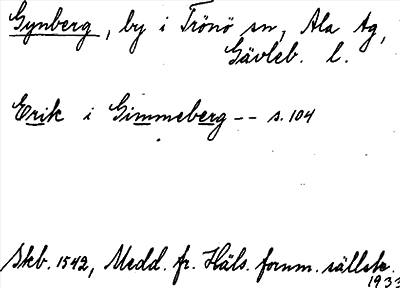 Gynberg, by i Trönö sn, Ala tg,
Gävleb. l.
Erik i Gimmeberg -- s. 104
Skb. 1542, Medd. fr. Häls. fornm. sällsk.
1933